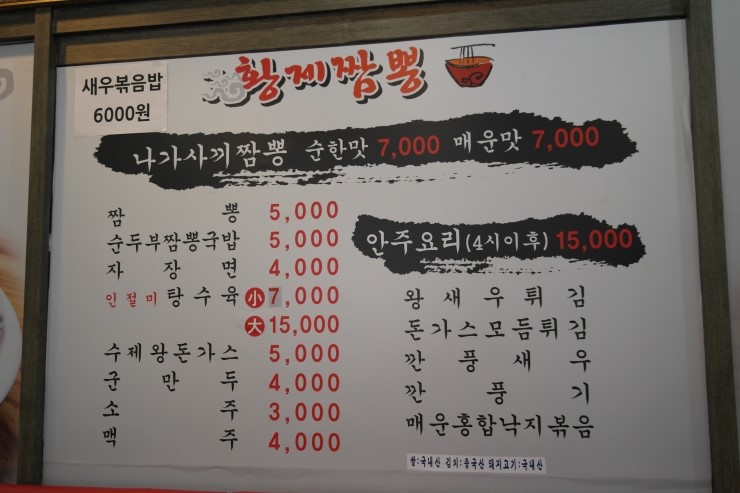 새우볶음밥
6000원
황제짬뽕
나가사끼짬뽕 순한맛 7,000 매운맛 7,000
짬뽕 5,000
순두부짬뽕국밥 5,000
자장면 4,000
인절미탕수육 小 7,000
大 15,000
수제왕돈가스 5,000
군만두 4,000
소주 3,000
맥주 4,000
안주요리(4시이후) 15,000
왕새우튀김
돈가스모듬튀김
깐풍새우
깐풍기
매운홍합낙지볶음
쌀:국내산 김치:중국산 돼지고기:국내산